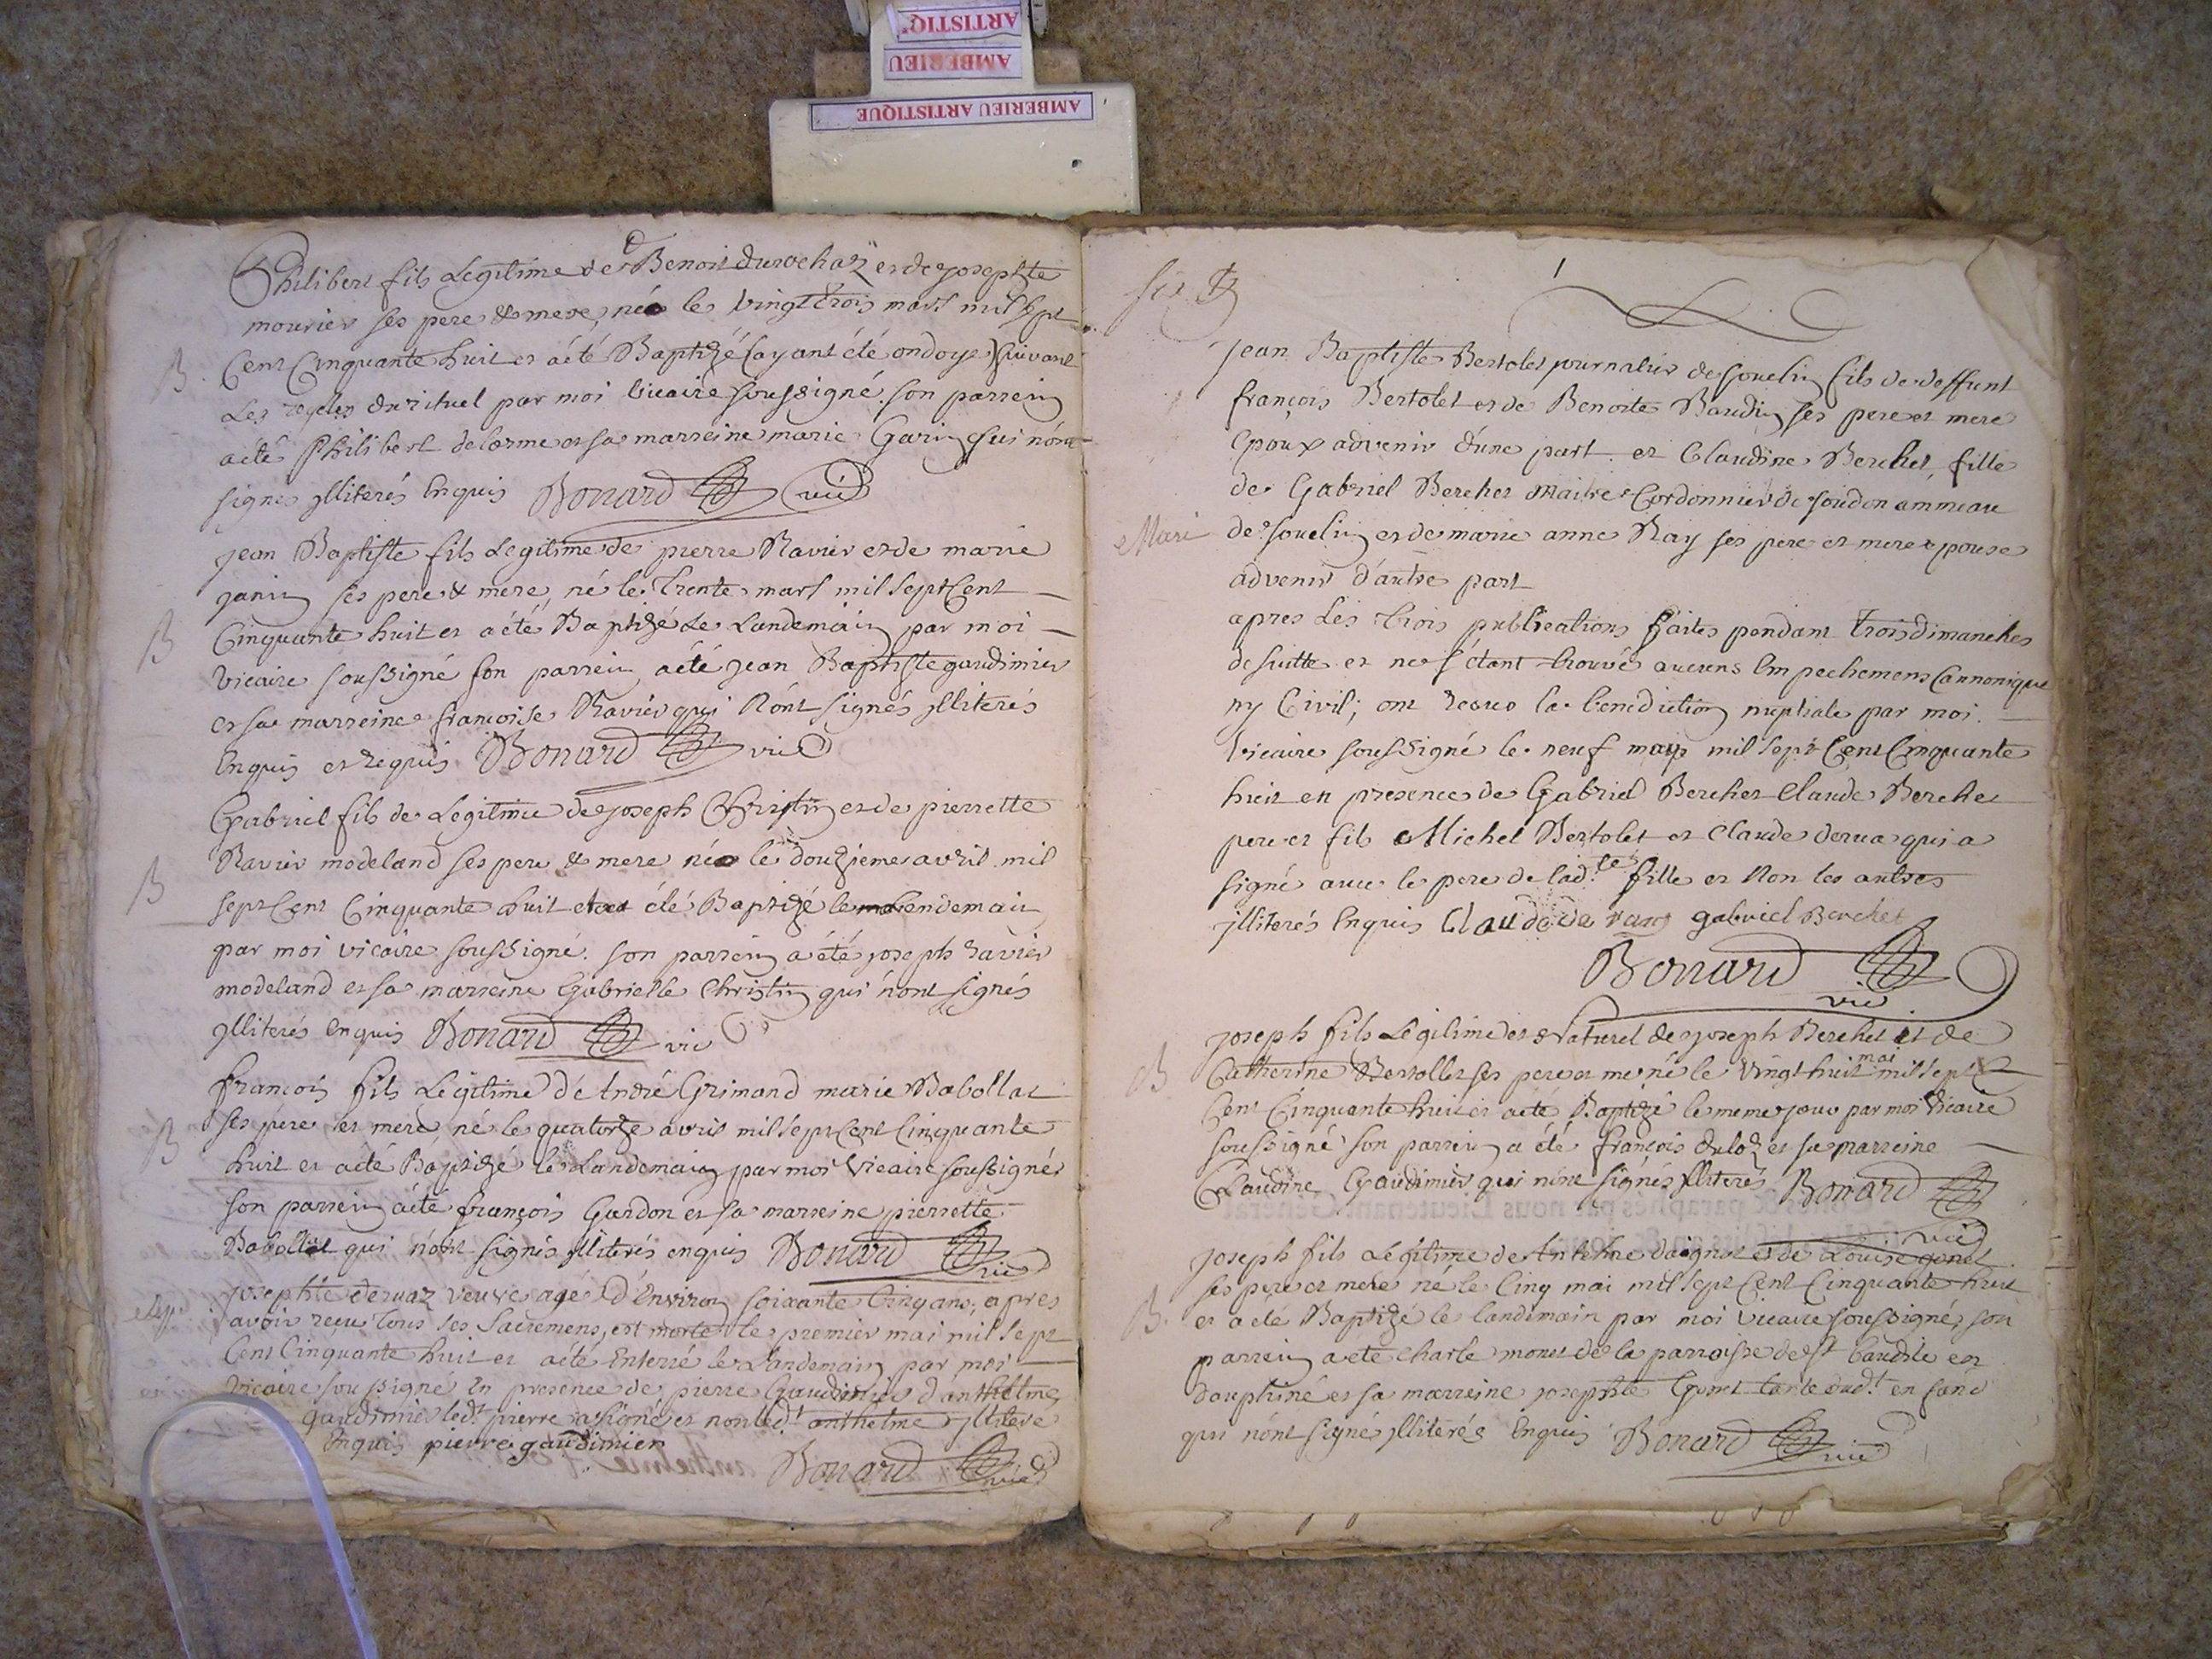 ARTISTIQ
AMBERIEU
AMBERIEU ARTISTIQUE
Philibert fils Legitime de Benoit et de josephte
mourier ses pere & mere, né le vingt trois mars mil sept
B. Cent Cinquante huit et a été Baptizé (ayant été ondoyé) suivant
Les regles du rituel par moi vicaire soussigné. son parrein
a été Philibert delorme et sa marreine marie Garin qui n'ont
signes illiterés Enquis Bonard vic
jean Baptiste fils Legitime de pierre Ravier et de marie
ganin ses pere & mere, né le Trente mars mil sept Cent
B Cinquante huit et a été Baptizé le Landemain par moi
vicaire soussigné son parrein a été jean Baptiste gaudimier
et sa marreine francoise Ravier qui n'ont signés illiterés
Enquis et requis Bonard vic
Gabriel fils de Legitime de joseph Christin et de pierrette
Ravier modeland ses pere & mere né le douzieme avril mil
B sept Cent Cinquante huit et a été Baptizé le lendemain
par moi vicaire soussigné. son parrein a été joseph ravier
modeland et sa marreine Gabrielle Christin qui n'ont signés
illiterés Enquis Bonard vic
francois fils Legitime d'André Grimand marie Babollat
ses pere et mere, né le quatorze avril mil sept Cent Cinquante
B huit et a été Baptizé le Landemain par moi Vicaire soussigné
son parrein a été françois Gandon et sa marreine pierrette
Babollat qui n'ont signés illiterés enquis Bonard vic
josephte dervaz veuve agé d'Environ soixante Cinq ans, apres
avoir reçu tous ses Sacremens, est morte le premier mai mil sept
Cent Cinquante huit et a été Enterré le Landemain par moi
vicaire soussigné En presence de pierre Gaudimier d'anthelme
gaudimier led.t pierre a signé et non led.t anthelme illitere
Enquis pierre gaudimier
Bonard vic
1
jean Baptiste Bertolet journalier de Souclin fils de deffunt
françois Bertolet et de Benoite Baudin ses pere et mere
Epoux advenir d'une part. et Claudine Berchet fille
de Gabriel Berchet Maitre Cordonnier de Soudon ammeau
Mari de Souclin et de marie anne Ray ses pere et mere epouse
advenir d'autre part
apres Les Trois publications faites pendant trois dimanches
de suitte et ne s'étant trouvé aucuns Empechemens Cannonique
ny Civil; ont recue la benediction nuptiale par moi
Vicaire soussigné le neuf may mil sept Cent Cinquante
huit en presence de Gabriel Berchet Claude Berchet
pere et fils Michel Bertolet et Claude derua qui a
signé avec le pere de lad.te fille et Non les autres
illiterés Enquis Claude de gabriel Berchet
Bonard vic
joseph fils Legitime et Naturel de joseph Berchet et de
B Catherine Bertollet ses pere et me né le Vingt huit mai mil sept
Cent Cinquante huit et a été Baptizé le meme jour par moi Vicaire
soussigné son parrein a été françois duloz et sa marreine
Claudine Gaudimier qui n'ont signés illiterés Bonard
vic
joseph fils Légitime de Antelme daignot et de Louise gonet
ses pere et mere né le Cinq mai mil sept Cent Cinquante huit
B. et a été Baptizé le landemain par moi Vicaire soussigné, son
parrein a été Charle monet de la parroisse de st baudile en
Dauphiné et sa marreine josephte Gonet tante dud.t enfand
qui n'ont signé illiterés Enquis Bonard vic